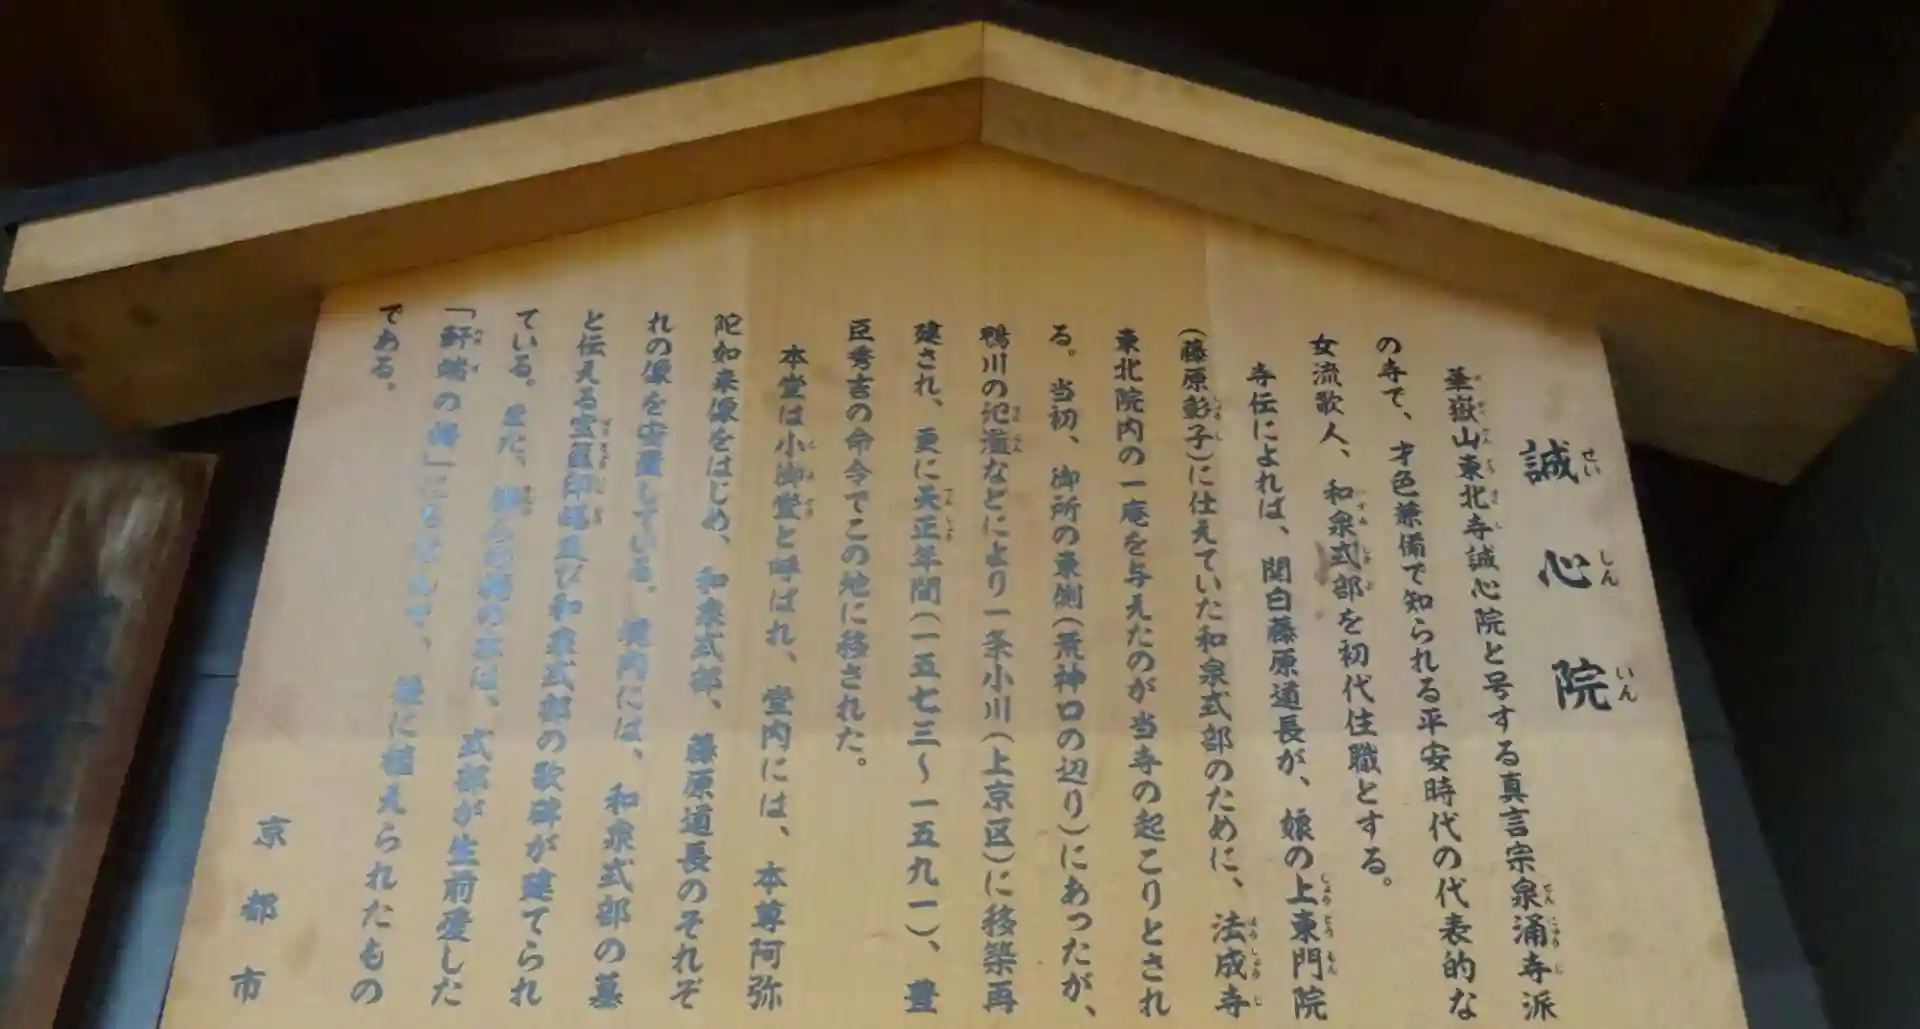 誠心院
華嶽山東北寺誠心院と号する真言宗泉涌寺派
の寺で、才色兼備で知られる平安時代の代表的な
女流歌人、和泉式部を初代住職とする。
寺伝によれば、関白藤原道長が、娘の上東門院
(藤原彰子)に仕えていた和泉式部のために、法成寺
東北院内の一庵を与えたのが当寺の起こりとされ
る。当初、御所の東側(荒神口の辺り)にあったが、
鴨川の氾濫などにより一条小川(上京区)に移築再
建され、更に天正年間(一五七三〜一五九一)、豊
臣秀吉の命令でこの地に移された。
本堂は小御堂と呼ばれ、堂内には、本尊阿弥
陀如来像をはじめ、和泉式部、藤原道長のそれぞ
れの像を安置している。境内には、和泉式部の墓
と伝える宝篋印塔及び和泉式部の歌碑が建てられ
ている。また、傍らの梅の木は、式部が生前愛した
「軒端の梅」にちなんで、後に植えられたもの
である。
京都市